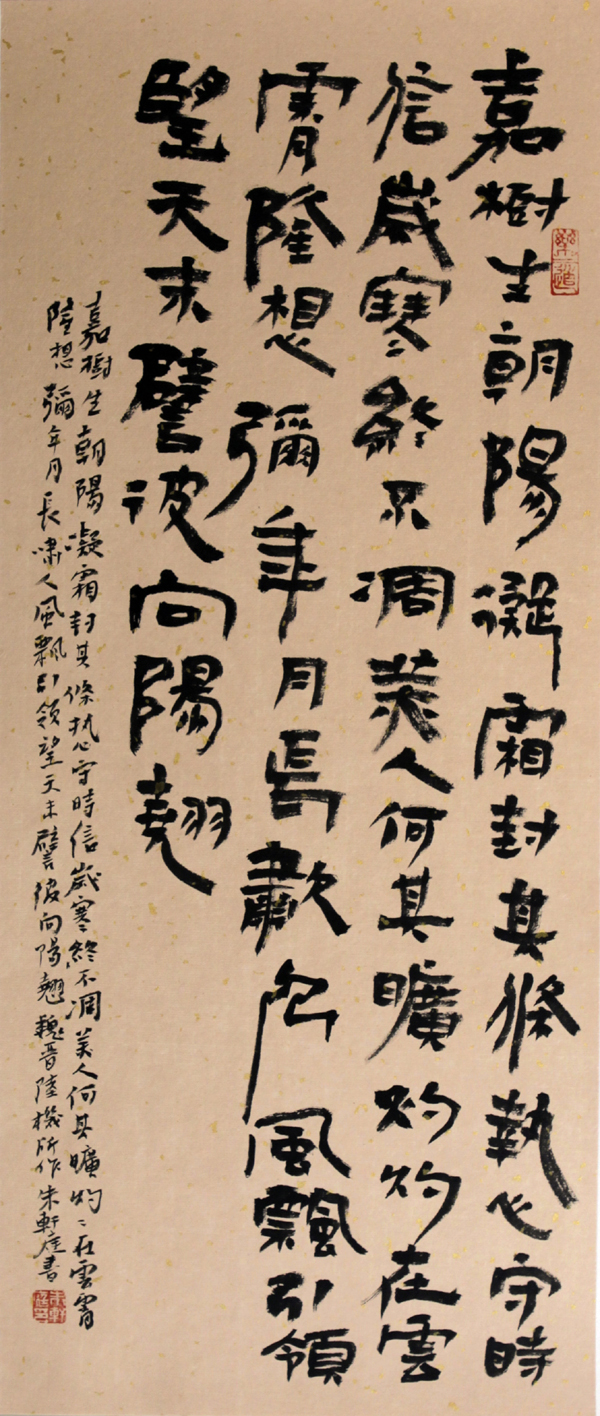 嘉樹生朝陽凝霜封其條執心守時
信歲寒終不凋美人何其曠灼灼在雲
霄隆想彌年月長歗入風飄引領
望天末譬彼向陽翹
嘉樹生朝陽凝霜封其條執心守時信歲寒終不凋美人何其曠灼〻在雲霄
隆想彌年月長嘯入風飄引領望天末譬彼向陽翹魏晉陸機所作朱軒庭書